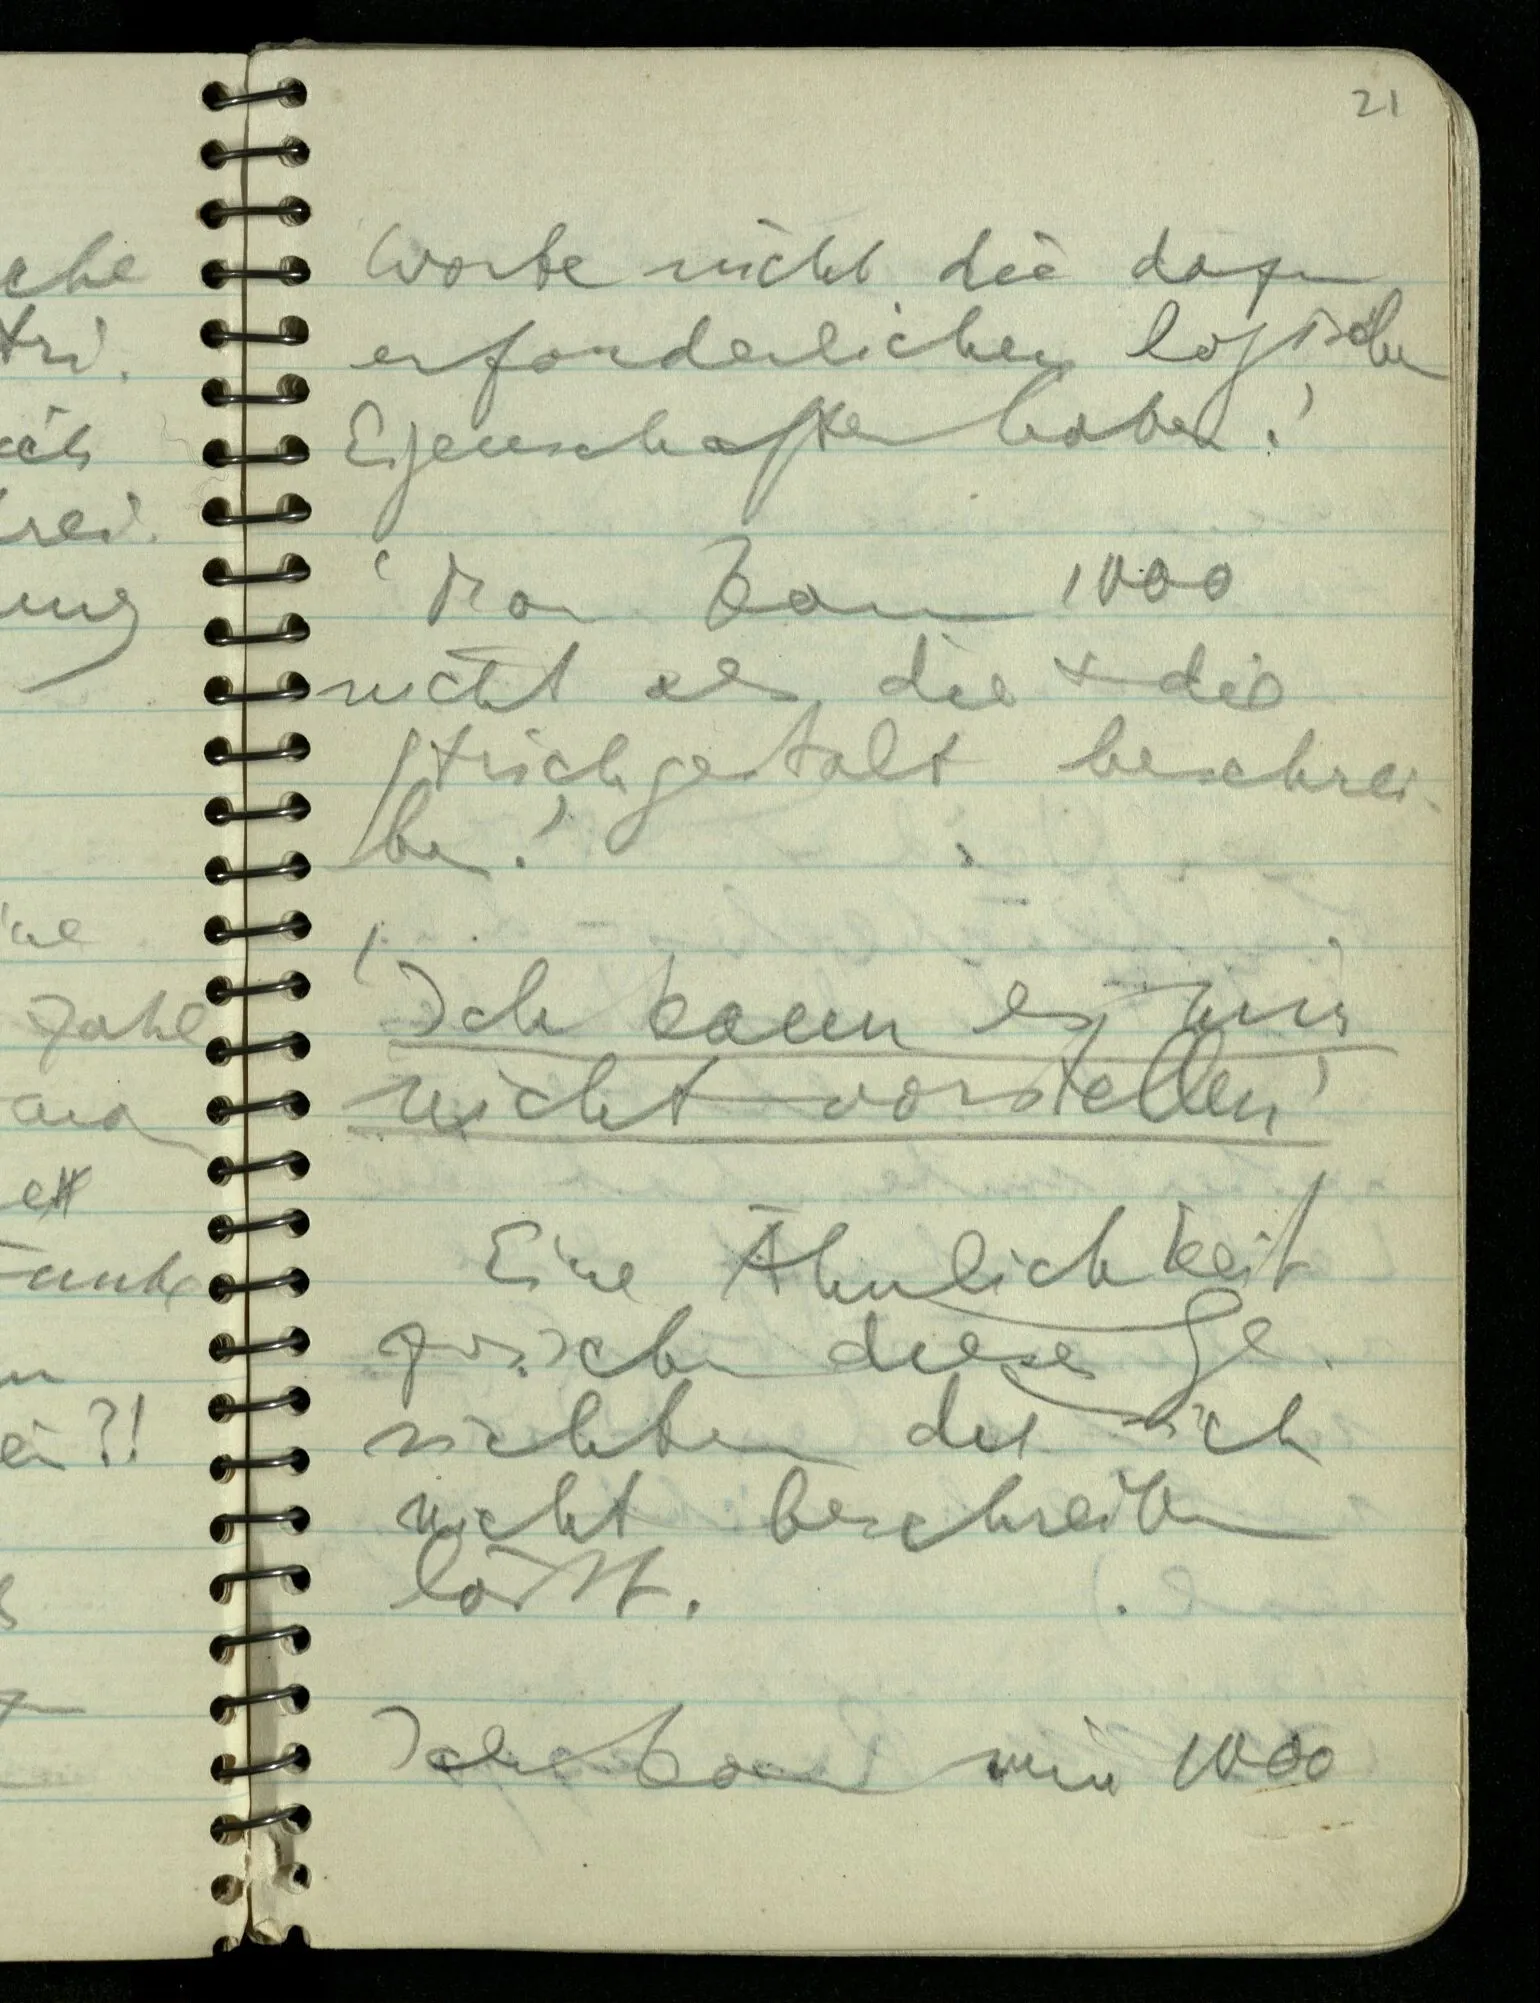 21
Worte nicht die dazu
erforderlichen logischen
Eigenschaften haben!
Man kann 1000
nicht als die & die
Strichgestalt beschrei-
ben!
'Ich kann es mir
nicht vorstellen'
Eine Ähnlichkeit
zwischen diesen Ge-
sichtern die sich
nicht beschreiben
läßt.
Ich kann mir 1000
che
tri.
rei.
ung
Zahl
ei?!